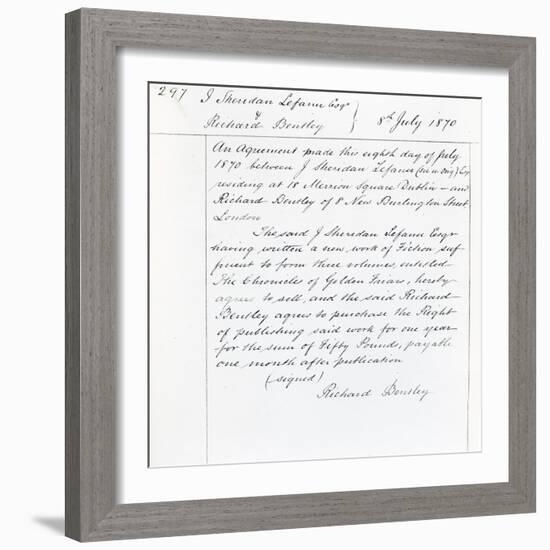 297 J Sheridan Lefanu Esqr
&
Richard Bentley } 8th July 1870
An Agreement made this eighth day of July
1870 between J Sheridan Lefanu (sic in Orig) Esq
residing at 18 Merrion Square Dublin - and
Richard Bentley of 8 New Burlington Street
London
The said J Sheridan Lefanu Esqr
having written a new work of Fiction suf-
ficient to form three volumes, entitled
The Chronicles of Golden Friars, hereby
agrees to sell, and the said Richard
Bentley agrees to purchase the Right
of publishing said work for one year
for the sum of Fifty Pounds, payable
one month after publication
(signed)
Richard Bentley